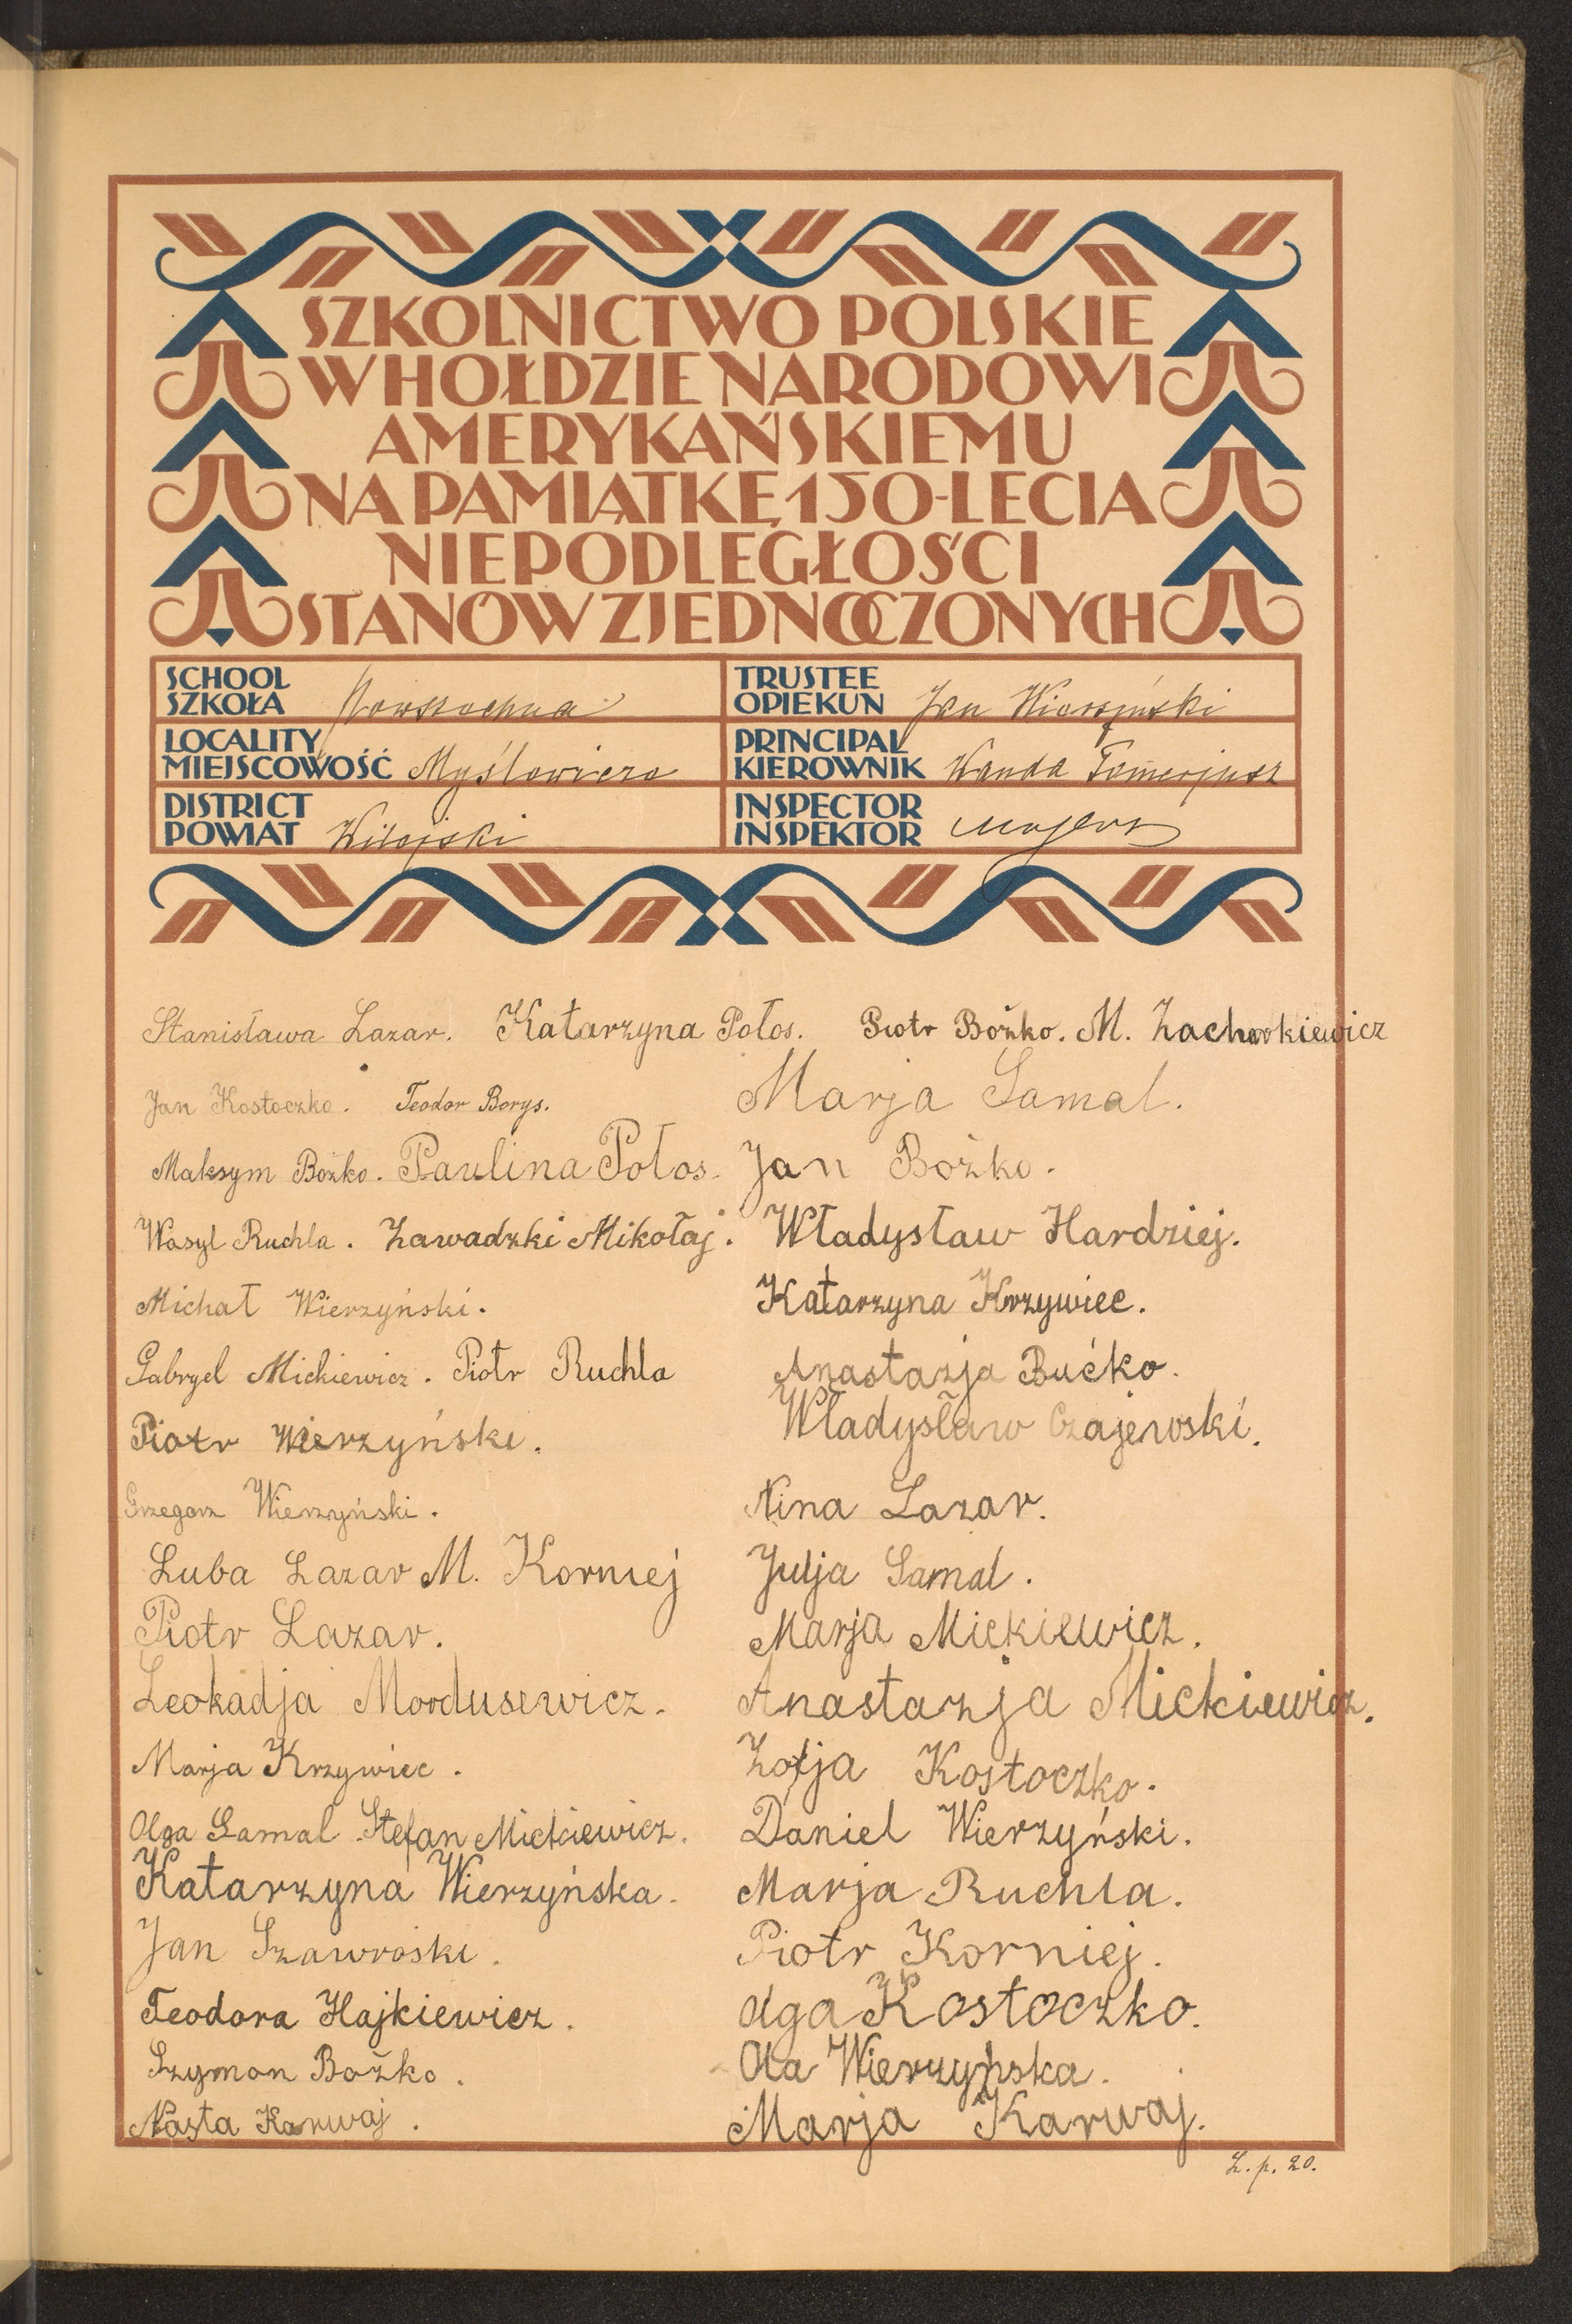 SZKOLNICTWO POLSKIE
W HOŁDZIE NARODOWI
AMERYKAŃSKIEMU
NA PAMIĄTKĘ 150-LECIA
NIEPODLEGŁOŚCI
STANÓW ZJEDNOCZONYCH
SCHOOL
SZKOŁA Powszechna
TRUSTEE
OPIEKUN Jan Wierzyński
LOCALITY
MIEJSCOWOŚĆ Myślowicze
PRINCIPAL
KIEROWNIK Wanda
DISTRICT
POWIAT Wilejski
INSPECTOR
INSPEKTOR
Stanisława Lazar. Katarzyna Połos. Piotr Bożko. M. Zacharkiewicz
Jan Kostoczko. Teodor Borys. Marja Samal.
Maksym Bożko. Paulina Połos. Jan Bożko.
Wasyl Ruchla. Zawadzki Mikołaj. Władysław Hardziej.
Michał Wierzyński. Katarzyna Krzywiec.
Gabryel Mickiewicz. Piotr Ruchla Anastazja Bućko.
Piotr Wierzyński. Władysław Czajewski.
Grzegorz Wierzyński. Nina Lazar.
Luba Lazar M. Korniej Julja Samal.
Piotr Lazar. Marja Mickiewicz.
Leokadja Mordusewicz. Anastazja Mickiewicz.
Marja Krzywiec. Zofja Kostoczko.
Olga Samal Stefan Mickiewicz. Daniel Wierzyński.
Katarzyna Wierzyńska. Marja Ruchla.
Jan Szawroski. Piotr Korniej.
Teodora Hajkiewicz. Olga Kostoczko.
Szymon Bożko. Ola Wierzyńska.
Nasta Karwaj. Marja Karwaj.
L. p. 20.